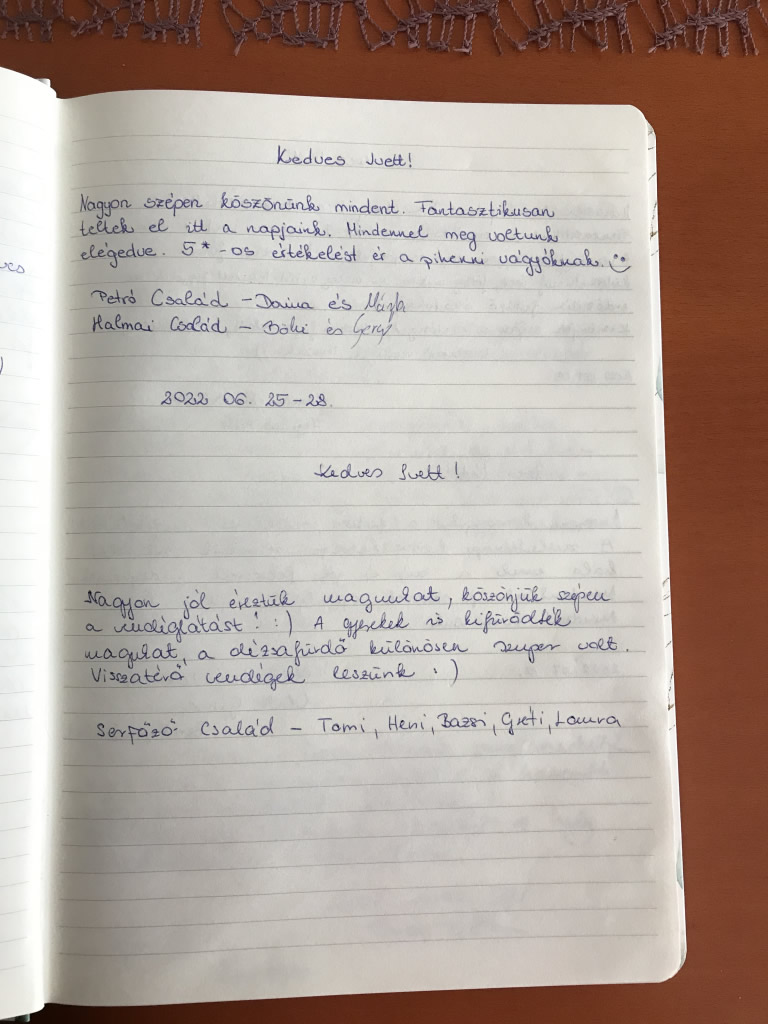 Kedves Ivett!
Nagyon szépen köszönünk mindent. Fantasztikusan
teltek el itt a napjaink. Mindennel meg voltunk
elégedve. 5* -os értékelést ér a pihenni vágyóknak. :)
Petró Család - Daina és
Halmai Család - Bölni és Gergő
2022 06. 25-28.
Kedves Ivett!
Nagyon jól éreztük magunkat, köszönjük szépen
a vendéglátást! :) A gyerekek is kifürödték
magukat, a dézsafürdő különösen szuper volt.
Visszatérő vendégek leszünk :)
Serfőző Család - Tomi, Heni, Bazsi, Gréti, Laura